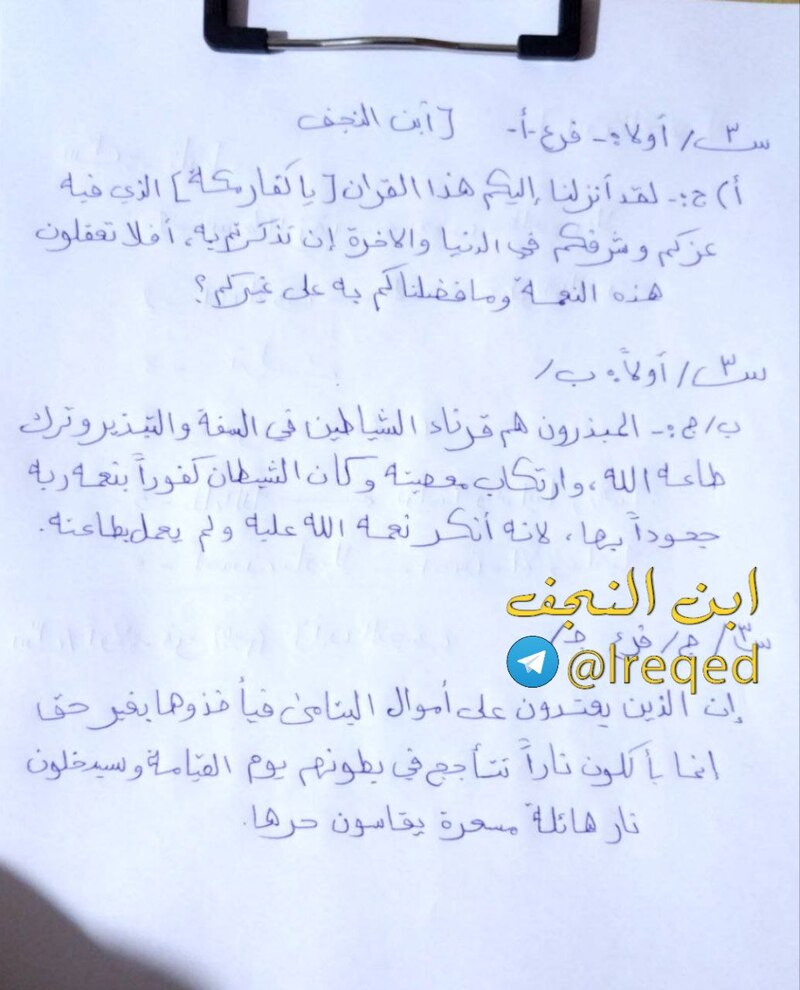 س٣/ أولاً:- فرع -أ- [أبن النجف
أ) ج:- لقد أنزلنا إليكم هذا القران [ياكفار مكة] الذي فيه
عزكم وشرفكم في الدنيا والاخرة إن تذكرتم به، أفلا تعقلون
هذه النعمة وما فضلناكم به على غيركم؟
س٣/ أولاً: ب/
ب/ج:- المبذرون هم قرناء الشياطين في السفة والتبذير وترك
طاعة الله، وارتكاب معصيته وكان الشيطان كفوراً بنعمة ربه
جحوداً بها، لانه أنكر نعمة الله عليه ولم يعمل بطاعته.
ابن النجف
س٣/ ج/ فرع ج/
@Ireqed
إن الذين يعتدون على أموال اليتامى فيأخذوها بغير حق
انما يأكلون ناراً تتأجج في بطونهم يوم القيامة وسيدخلون
نار هائلة مسعرة يقاسون حرها.